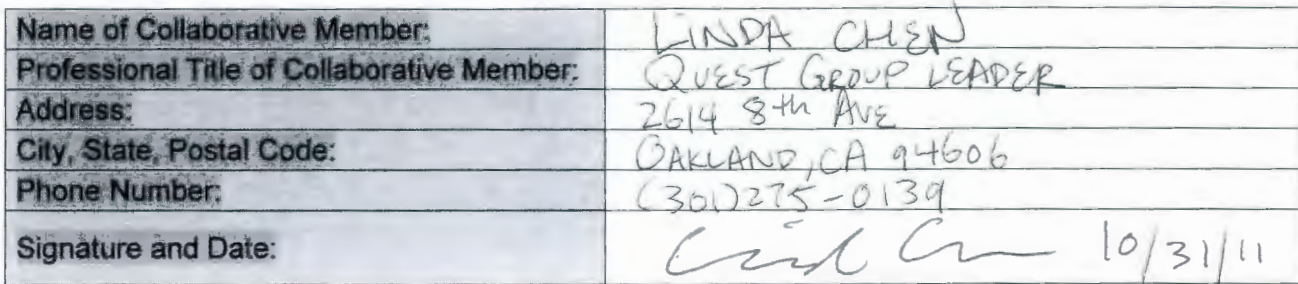 Name of Collaborative Member: LINDA CHEN
Professional Title of Collaborative Member: QUEST GROUP LEADER
Address: 2614 8th AVE
City, State, Postal Code: OAKLAND, CA 94606
Phone Number: (301)275-0139
Signature and Date: 10/31/11